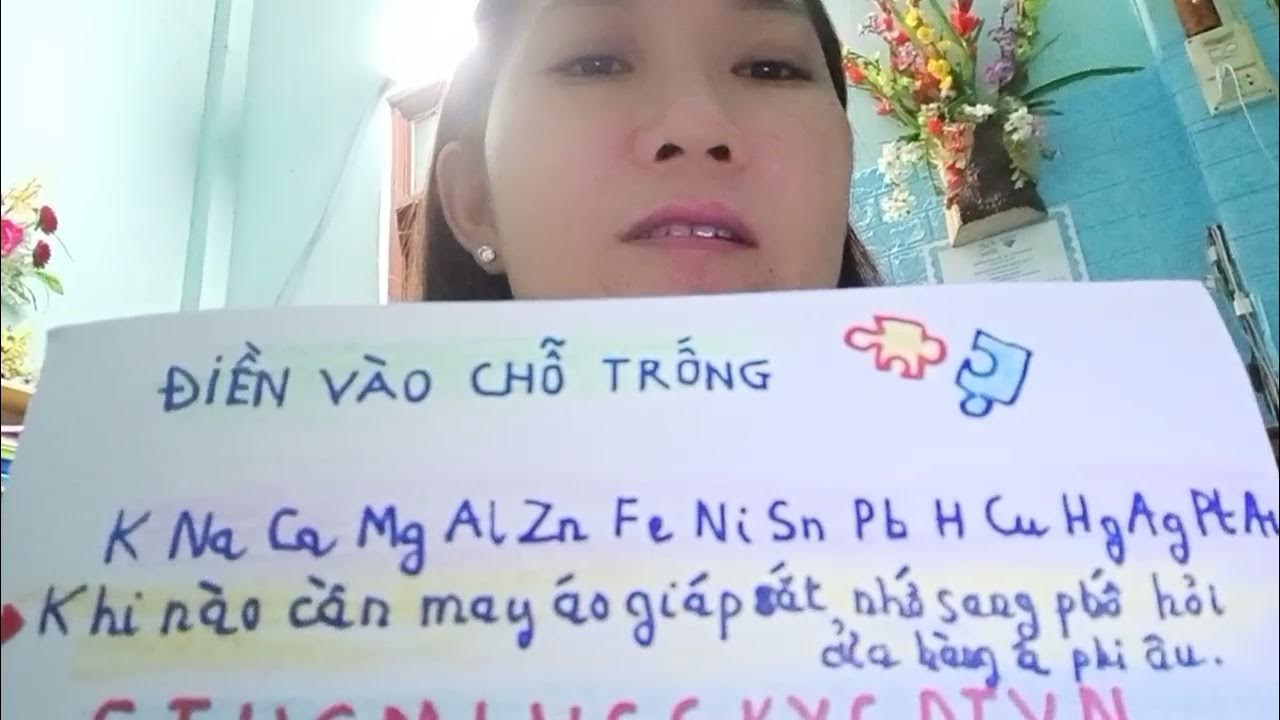 ĐIỀN VÀO CHỖ TRỐNG
K Na Ca Mg Al Zn Fe Ni Sn Pb H Cu Hg Ag Pt Au
Khi nào cần may áo giáp sắt nhớ sang phố hỏi
cửa hàng á phi âu.